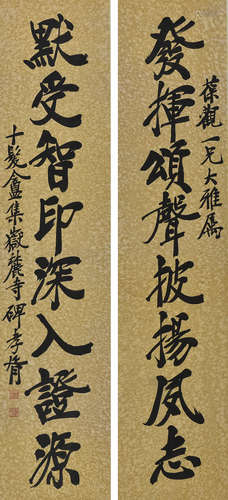 葆觀一兄大雅屬
發揮頌聲披揚夙志
默受智印深入證源
十髮盦集嶽麓寺碑孝胥